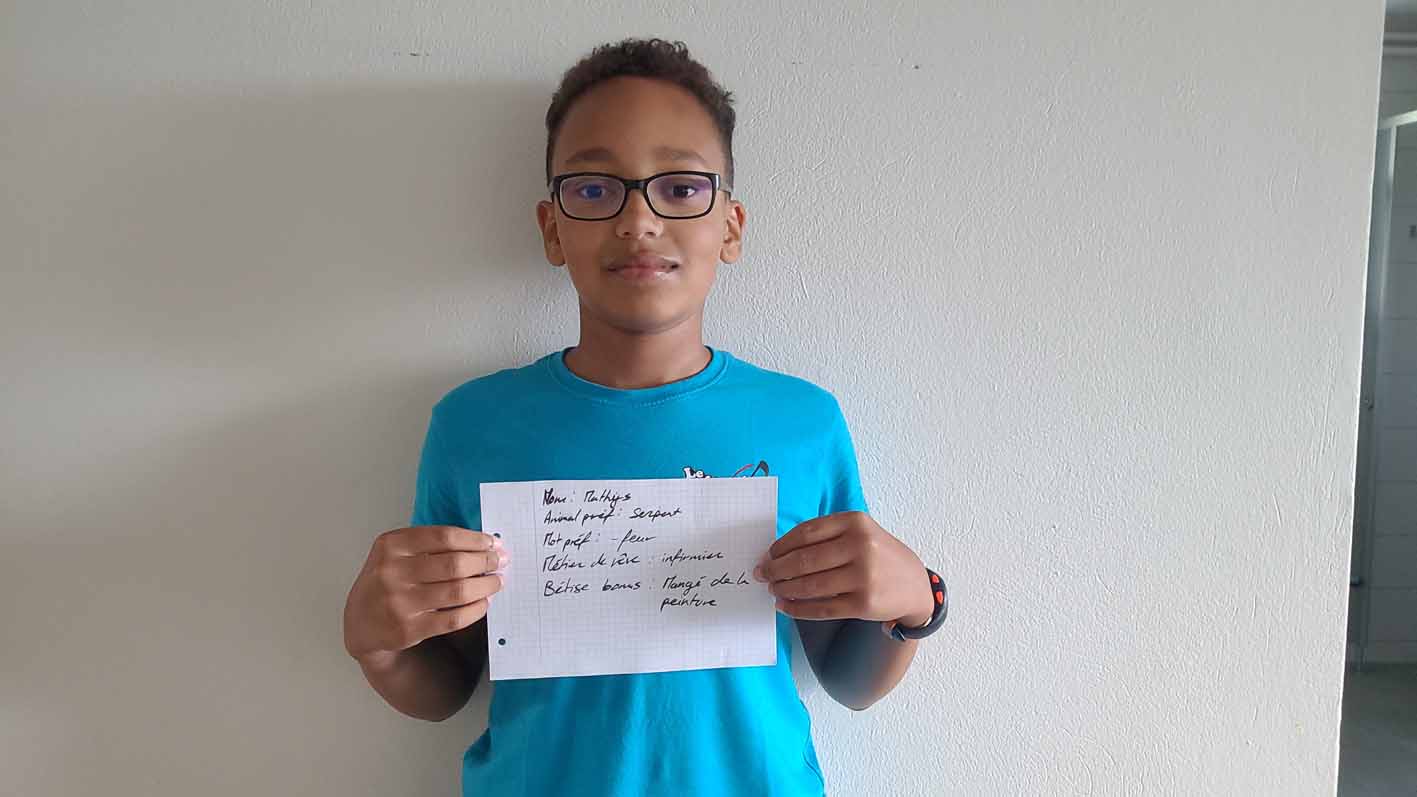 Le
Nom : Mathys
Animal préf : Serpent
Mot préf : -feur
Métier de rêve : infirmier
Bêtise bonus : Mangé de la
peinture